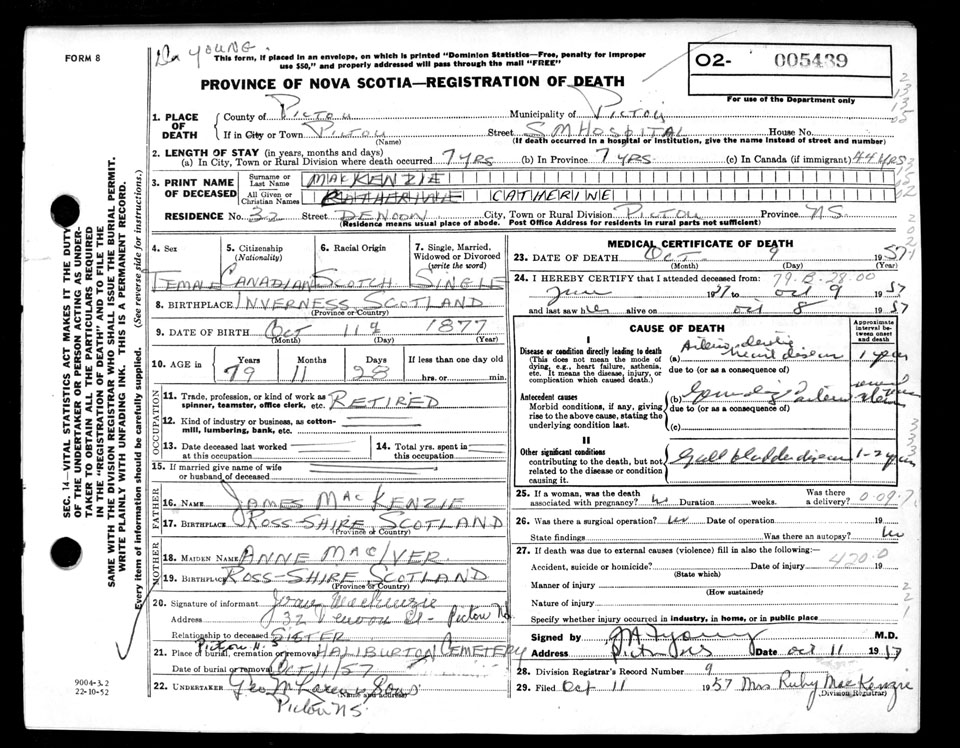 FORM 8
Dr YOUNG.
This form, if placed in an envelope, on which is printed "Dominion Statistics—Free, penalty for improper
use $50," and properly addressed will pass through the mail "FREE"
O2- 005439
For use of the Department only
PROVINCE OF NOVA SCOTIA—REGISTRATION OF DEATH
1. PLACE OF DEATH
County of PICTOU Municipality of PICTOU
If in City or Town PICTOU (Name) Street SM HOSPITAL House No.
(If death occurred in a hospital or institution, give the name instead of street and number)
2. LENGTH OF STAY (in years, months and days)
(a) In City, Town or Rural Division where death occurred 7 YRS (b) In Province 7 YRS. (c) In Canada (if immigrant) 44 YRS
3. PRINT NAME OF DECEASED
Surname or Last Name MACKENZIE
All Given or Christian Names CATHERINE CATHERINE
RESIDENCE No. 32 Street DENOON City, Town or Rural Division PICTOU Province NS
(Residence means usual place of abode. Post Office Address for residents in rural parts not sufficient)
4. Sex
5. Citizenship (Nationality)
6. Racial Origin
7. Single, Married, Widowed or Divorced (write the word)
FEMALE CANADIAN SCOTCH SINGLE
8. BIRTHPLACE INVERNESS SCOTLAND
(Province or Country)
9. DATE OF BIRTH Oct 11 1877
(Month) (Day) (Year)
10. AGE in Years Months Days If less than one day old
79 11 28 hrs. or min.
OCCUPATION
11. Trade, profession, or kind of work as spinner, teamster, office clerk, etc. RETIRED
12. Kind of industry or business, as cotton-mill, lumbering, bank, etc.
13. Date deceased last worked at this occupation
14. Total yrs. spent in this occupation
15. If married give name of wife or husband of deceased
FATHER
16. NAME JAMES MACKENZIE
17. BIRTHPLACE ROSS-SHIRE, SCOTLAND
(Province or Country)
MOTHER
18. MAIDEN NAME ANNE MACIVER
19. BIRTHPLACE ROSS-SHIRE, SCOTLAND
(Province or Country)
20. Signature of informant Mackenzie
Address 32 Denoon St - Pictou NS
Relationship to deceased SISTER
Pictou N.S
21. Place of burial, cremation or removal HALIBURTON CEMETERY
Date of burial or removal Oct 11/57
22. UNDERTAKER Geo McLaren & Sons
(Name and address)
Pictou NS.
MEDICAL CERTIFICATE OF DEATH
23. DATE OF DEATH Oct 9 1957
(Month) (Day) (Year)
79.8.28.00
24. I HEREBY CERTIFY that I attended deceased from:
June 1957 to oct 9 1957
and last saw her alive on oct 8 1957
CAUSE OF DEATH
Approximate interval between onset and death
I
Disease or condition directly leading to death
(This does not mean the mode of dying, e.g., heart failure, asthenia, etc. It means the disease, injury, or complication which caused death.)
(a) heart disease 1 year
due to (or as a consequence of)
Antecedent causes
Morbid conditions, if any, giving rise to the above cause, stating the underlying condition last.
(b)
due to (or as a consequence of)
(c)
II
Other significant conditions
contributing to the death, but not related to the disease or condition causing it.
Gall bladder disease 1-2 years
25. If a woman, was the death associated with pregnancy? Duration weeks. Was there a delivery?
26. Was there a surgical operation? Date of operation 19
State findings Was there an autopsy?
27. If death was due to external causes (violence) fill in also the following:—
420.0
Accident, suicide or homicide? Date of injury 19
(State which)
Manner of injury
(How sustained)
Nature of injury
Specify whether injury occurred in industry, in home, or in public place
Signed by Young M.D.
Address Pictou NS Date oct 11 1957
28. Division Registrar's Record Number 9
29. Filed Oct 11 1957 Mrs Ruby MacKenzie
(Division Registrar)
SEC. 14—VITAL STATISTICS ACT MAKES IT THE DUTY
OF THE UNDERTAKER OR PERSON ACTING AS UNDER-
TAKER TO OBTAIN ALL THE PARTICULARS REQUIRED
IN THE "REGISTRATION OF DEATH" AND TO FILE THE
SAME WITH THE DIVISION REGISTRAR WHO SHALL ISSUE THE BURIAL PERMIT.
WRITE PLAINLY WITH UNFADING INK. THIS IS A PERMANENT RECORD.
Every item of information should be carefully supplied. (See reverse side for instructions.)
9004-3.2
22-10-52